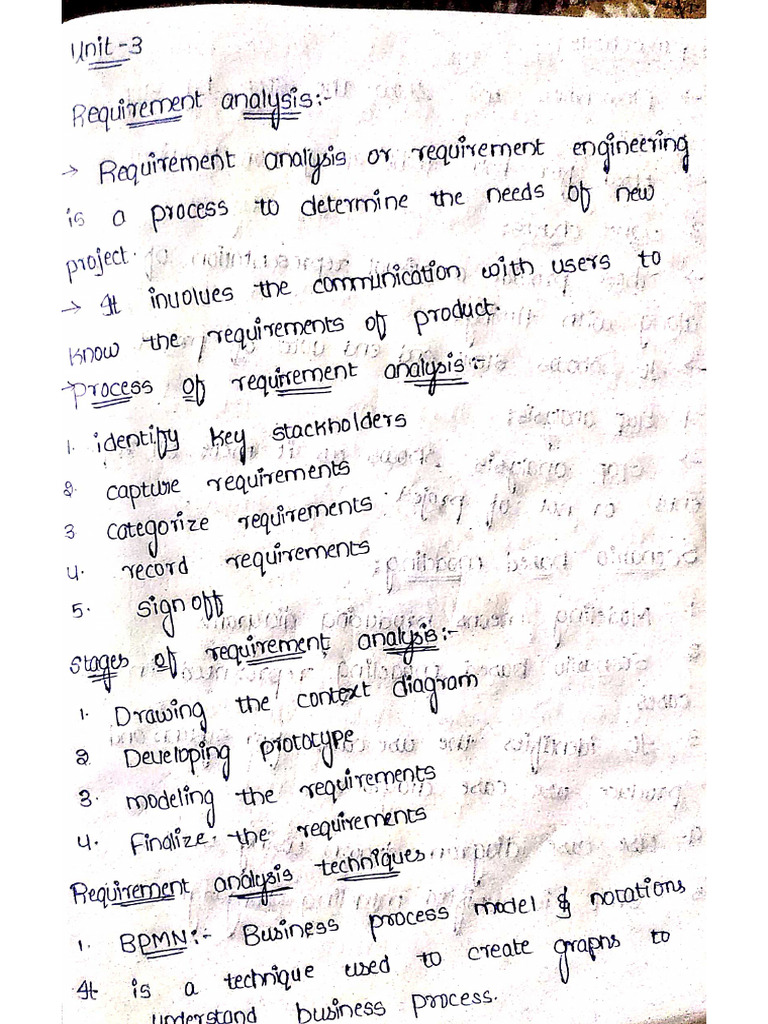 Unit-3
Requirement analysis:-
→ Requirement analysis or requirement engineering
is a process to determine the needs of new
project.
→ It involves the communication with users to
know the requirements of product.
→ process of requirement analysis:-
1. identify key stackholders
2. capture requirements
3 categorize requirements
4. record requirements
5. sign off
stages of requirement analysis:-
1. Drawing the context diagram
2. Developing prototype
3. modeling the requirements
4. Finalize the requirements
Requirement analysis techniques
1. BPMN:- Business process model & notations
It is a technique used to create graphs to
understand business process.